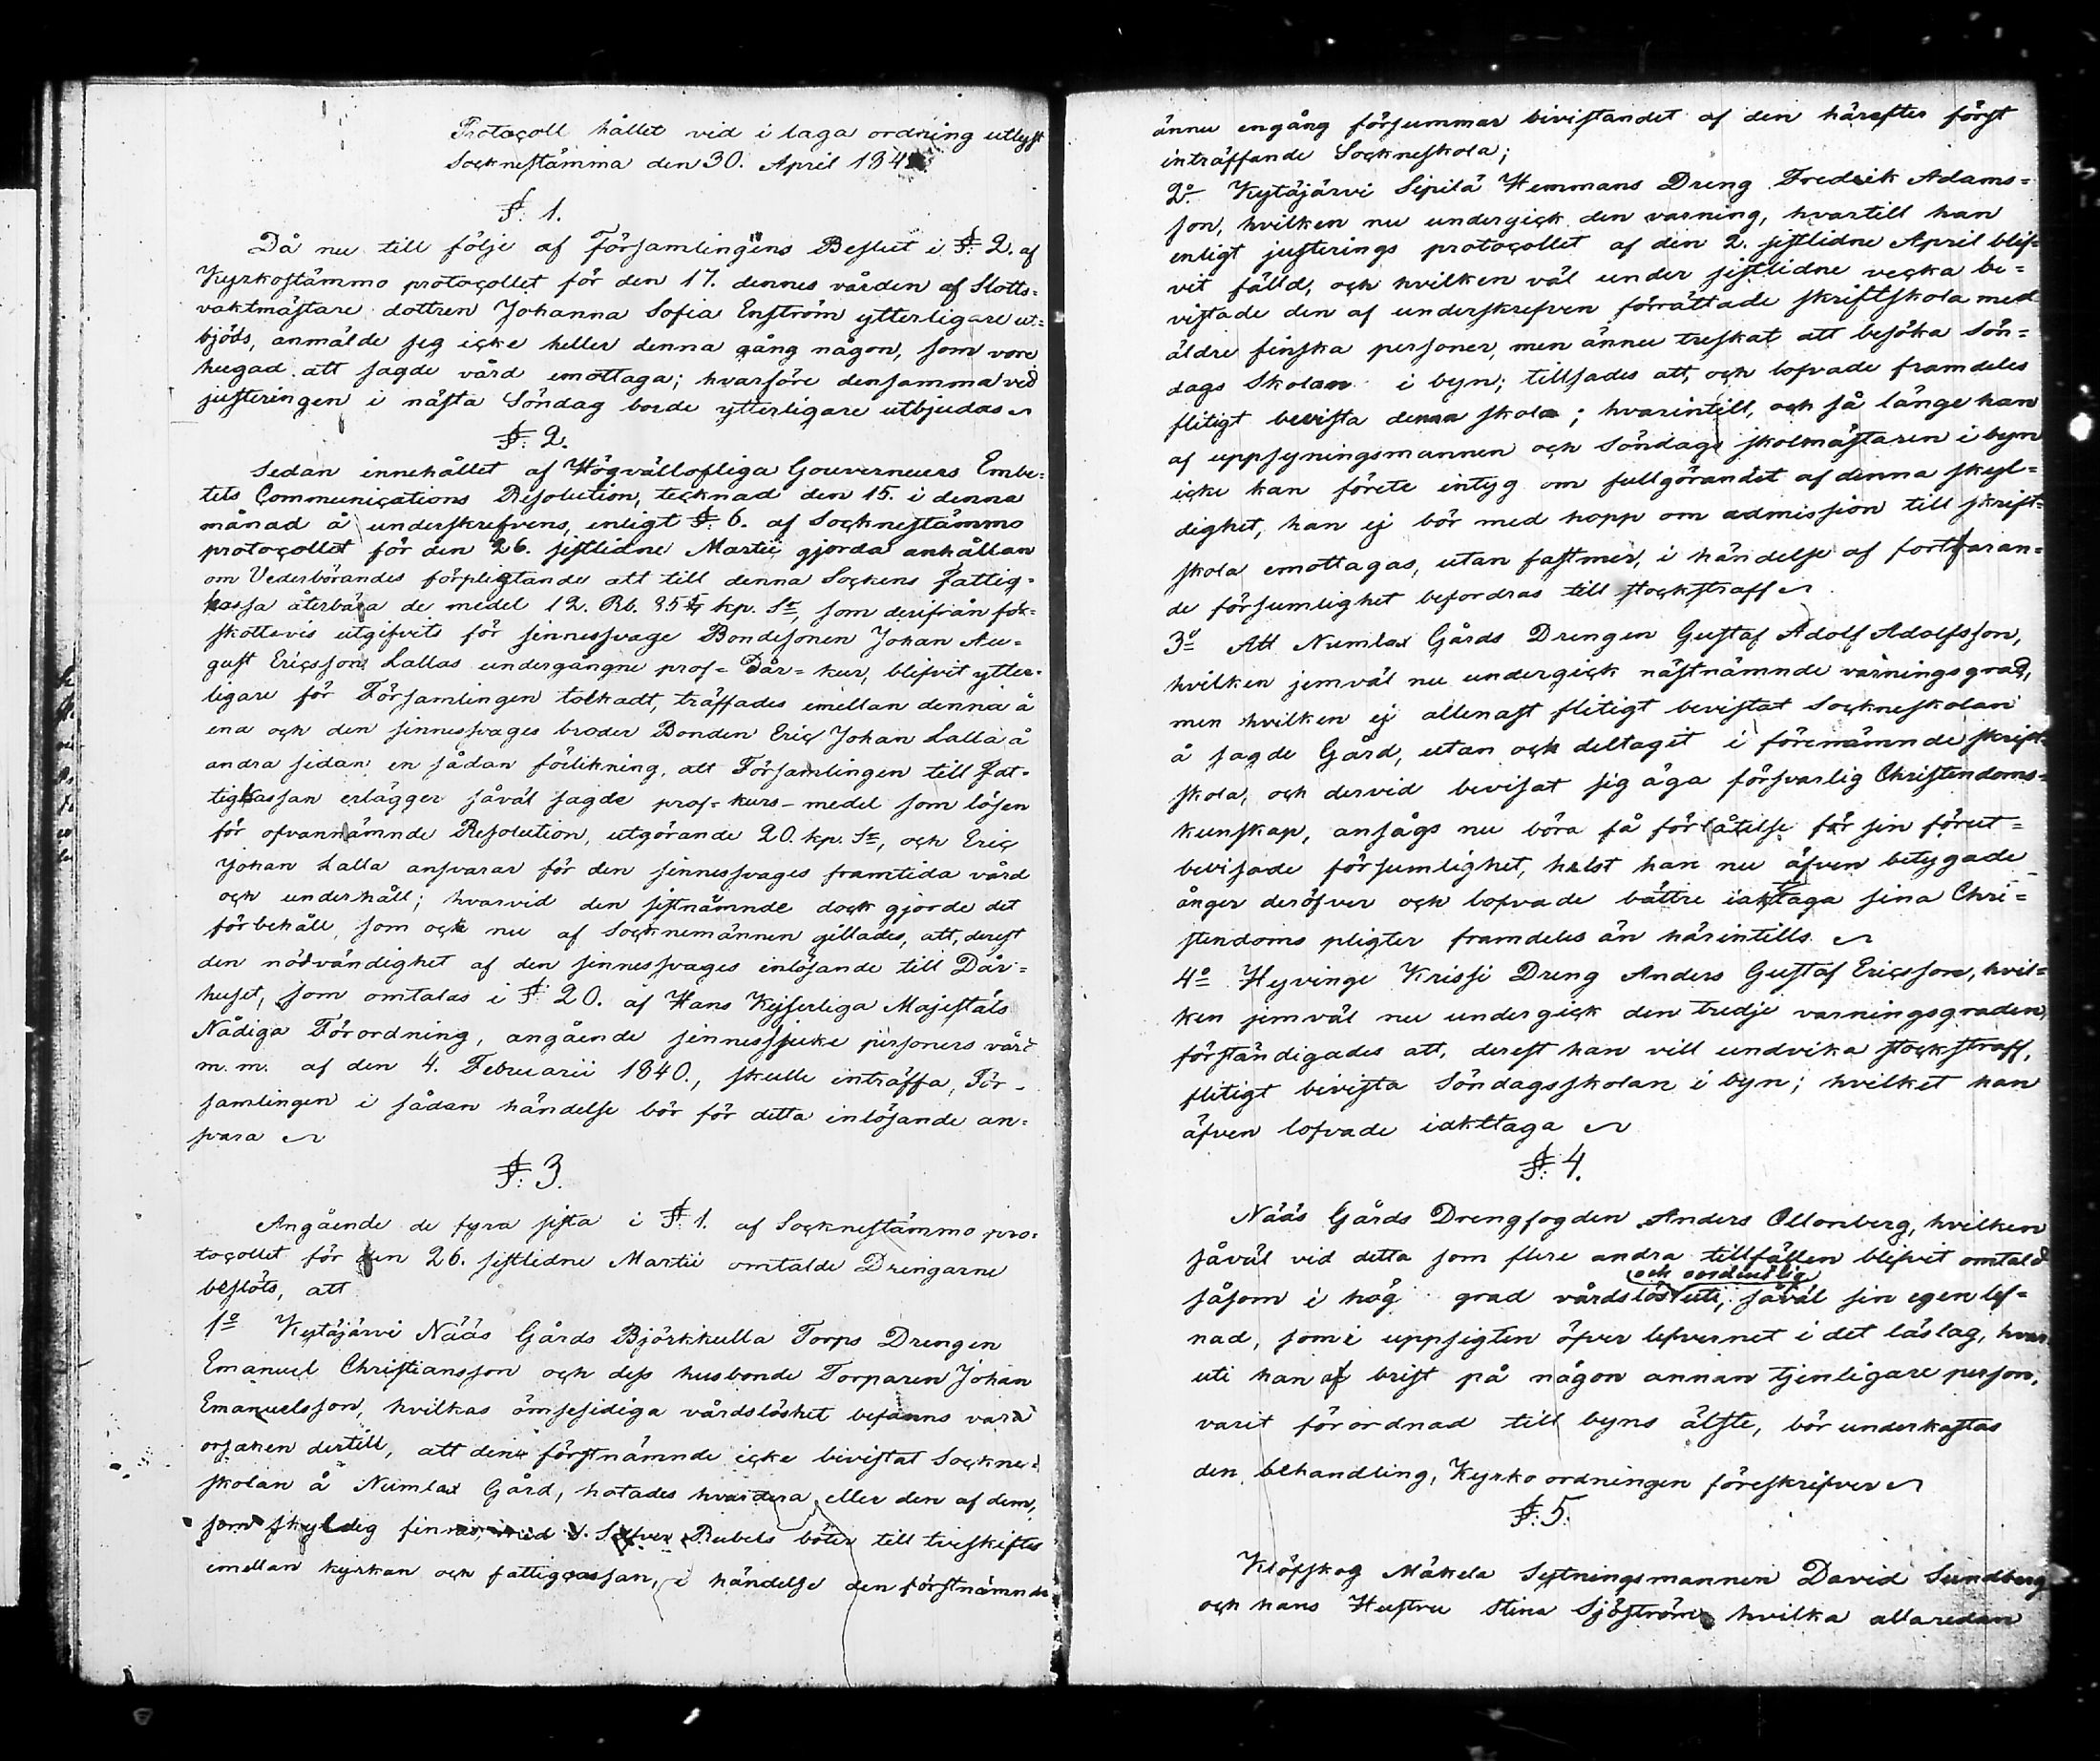 Protocoll hållet vid i laga ordning utlyst
Socknestämma den 30. April 184
§. 1.
Då nu till följe af Församlingens Beslut i §. 2. af
Kyrkostämmo protocollet för den 17. dennes vården af Slotts=
vaktmästare dottren Johanna Sofia Enström ytterligare ut=
bjöds, anmälde sig icke heller denna gång någon, som vore
hugad att sagde vård emottaga; hvarföre densamma vid
justeringen i nästa Söndag borde ytterligare utbjudas
§. 2.
Sedan innehållet af Högvällofliga Gouverneurs Embe=
tets Communications Resolution, tecknad den 15. i denna
månad å underskrefvens, enligt §. 6. af Socknestämmo
protocollet för den 26. sistlidne Martii gjorda anhållan
om Vederbörandes förpligtande att till denna Sockens fattig=
kassa återbära de medel 12. Rb. 85 kp. Sr, som derifrån för=
skottsvis utgifvits för sinnessvage Bondesonen Johan Au=
gust Ericssons Lallas undergångne prof= Dår= kur, blifvit ytter=
ligare för Församlingen tolkadt, träffades emellan denna å
ena och den sinnessvages broder Bonden Eric Johan Lalla å
andra sidan en sådan förlikning, att Församlingen till Fat=
tigkassan erlägger såväl sagde prof= kurs- medel som lösen
för ofvannämnde Resolution, utgörande 20. kp. Sr, och Eric
Johan Lalla ansvarar för den sinnessvages framtida vård
och underhåll; hvarvid den sistnämnde dock gjorde det
förbehåll, som ock nu af Socknemännen gillades, att, derest
den nödvändighet af den sinnessvages inlösande till Dår=
huset, som omtalas i §. 20. af Hans Kejserliga Majestäts
Nådiga Förordning, angående sinnessjuke personers vård
m. m. af den 4. Februarii 1840., skulle inträffa, För-
samlingen i sådan händelse bör för detta inlösande an=
svara
§. 3.
Angående de fyra sista i §. 1. af Socknestämmo pro=
tocollet för den 26. sistlidne Martii omtalde Drengarne
beslöts, att
1o Kytäjärvi Nääs Gårds Björkkulla Torps Drengen
Emanuel Christiansson och dess husbonde Torparen Johan
Emanuelsson, hvilkas ömsesidiga vårdslöshet befanns vara
orsaken dertill, att den förstnämnde icke bevistat Sockne=
skolan å Numlax Gård, hotades hvardera eller den af dem,
som skyldig finnes, med Silfver Rubels böter till tveskiftes
emellan kyrkan och fattigcassan, i händelse den förstnämnde
ännu engång försummar bevistandet af den härefter först
inträffande Sockneskola;
2o Kytäjärvi Sipilä Hemmans Dreng Fredrik Adams=
son, hvilken nu undergick den varning, hvartill han
enligt justerings protocollet af den 2. sistlidne April blif=
vit fälld, och hvilken väl under sistlidne vecka be=
vistade den af underskrefven förrättade skriftskola med
äldre finska personer, men ännu treskat att besöka Sön=
dags Skolan i byn; tillsades att, och lofvade framdeles
flitigt bevista denna skola; hvarintill, och så länge han
af uppsyningsmannen och Söndags skolmästaren i byn
icke kan förete intyg om fullgörandet af denna skyl=
dighet, han ej bör med hopp om admission till skrift=
skola emottagas, utan fastmer, i händelse af fortfaran=
de försumlighet befordras till stockstraff
3o Att Numlax Gårds Drengen Gustaf Adolf Adolfsson,
hvilken jemväl nu undergick nästnämnde varningsgrad,
men hvilken ej allenast flitigt bevistat Sockneskolan
å sagde Gård, utan ock deltagit i förenämnde skrift=
skola, och dervid bevisat sig äga försvarlig Christendoms=
kunskap, ansågs nu böra få förlåtelse för sin förut=
bevisade försumlighet, helst han nu äfven betygade
ånger deröfver och lofvade bättre iakttaga sina Chri=
stendoms pligter framdeles än härintills
4o Hyvinge Krissi Dreng Anders Gustaf Ericsson, hvil=
ken jemväl nu undergick den tredje varningsgraden,
förständigades att, derest han vill undvika stockstraff,
flitigt bevista Söndagsskolan i byn; hvilket han
äfven lofvade iakttaga
§. 4.
Nääs Gårds Drengfogden Anders Ollonberg, hvilken
såväl vid detta som flere andra tillfällen blifvit omtald
och oordentlig
såsom i hög grad vårdslös uti, såväl sin egen lef=
nad, som i uppsigten öfver lefvernet i det läslag, hvar
uti han af brist på någon annan tjenligare person,
varit förordnad till byns älste, bör underkastas
den behandling, Kyrko ordningen föreskrifver
§. 5.
Klöfskog Mäkelä Sytningsmannen David Sundberg
och hans Hustru Stina Sjöström hvilka allaredan